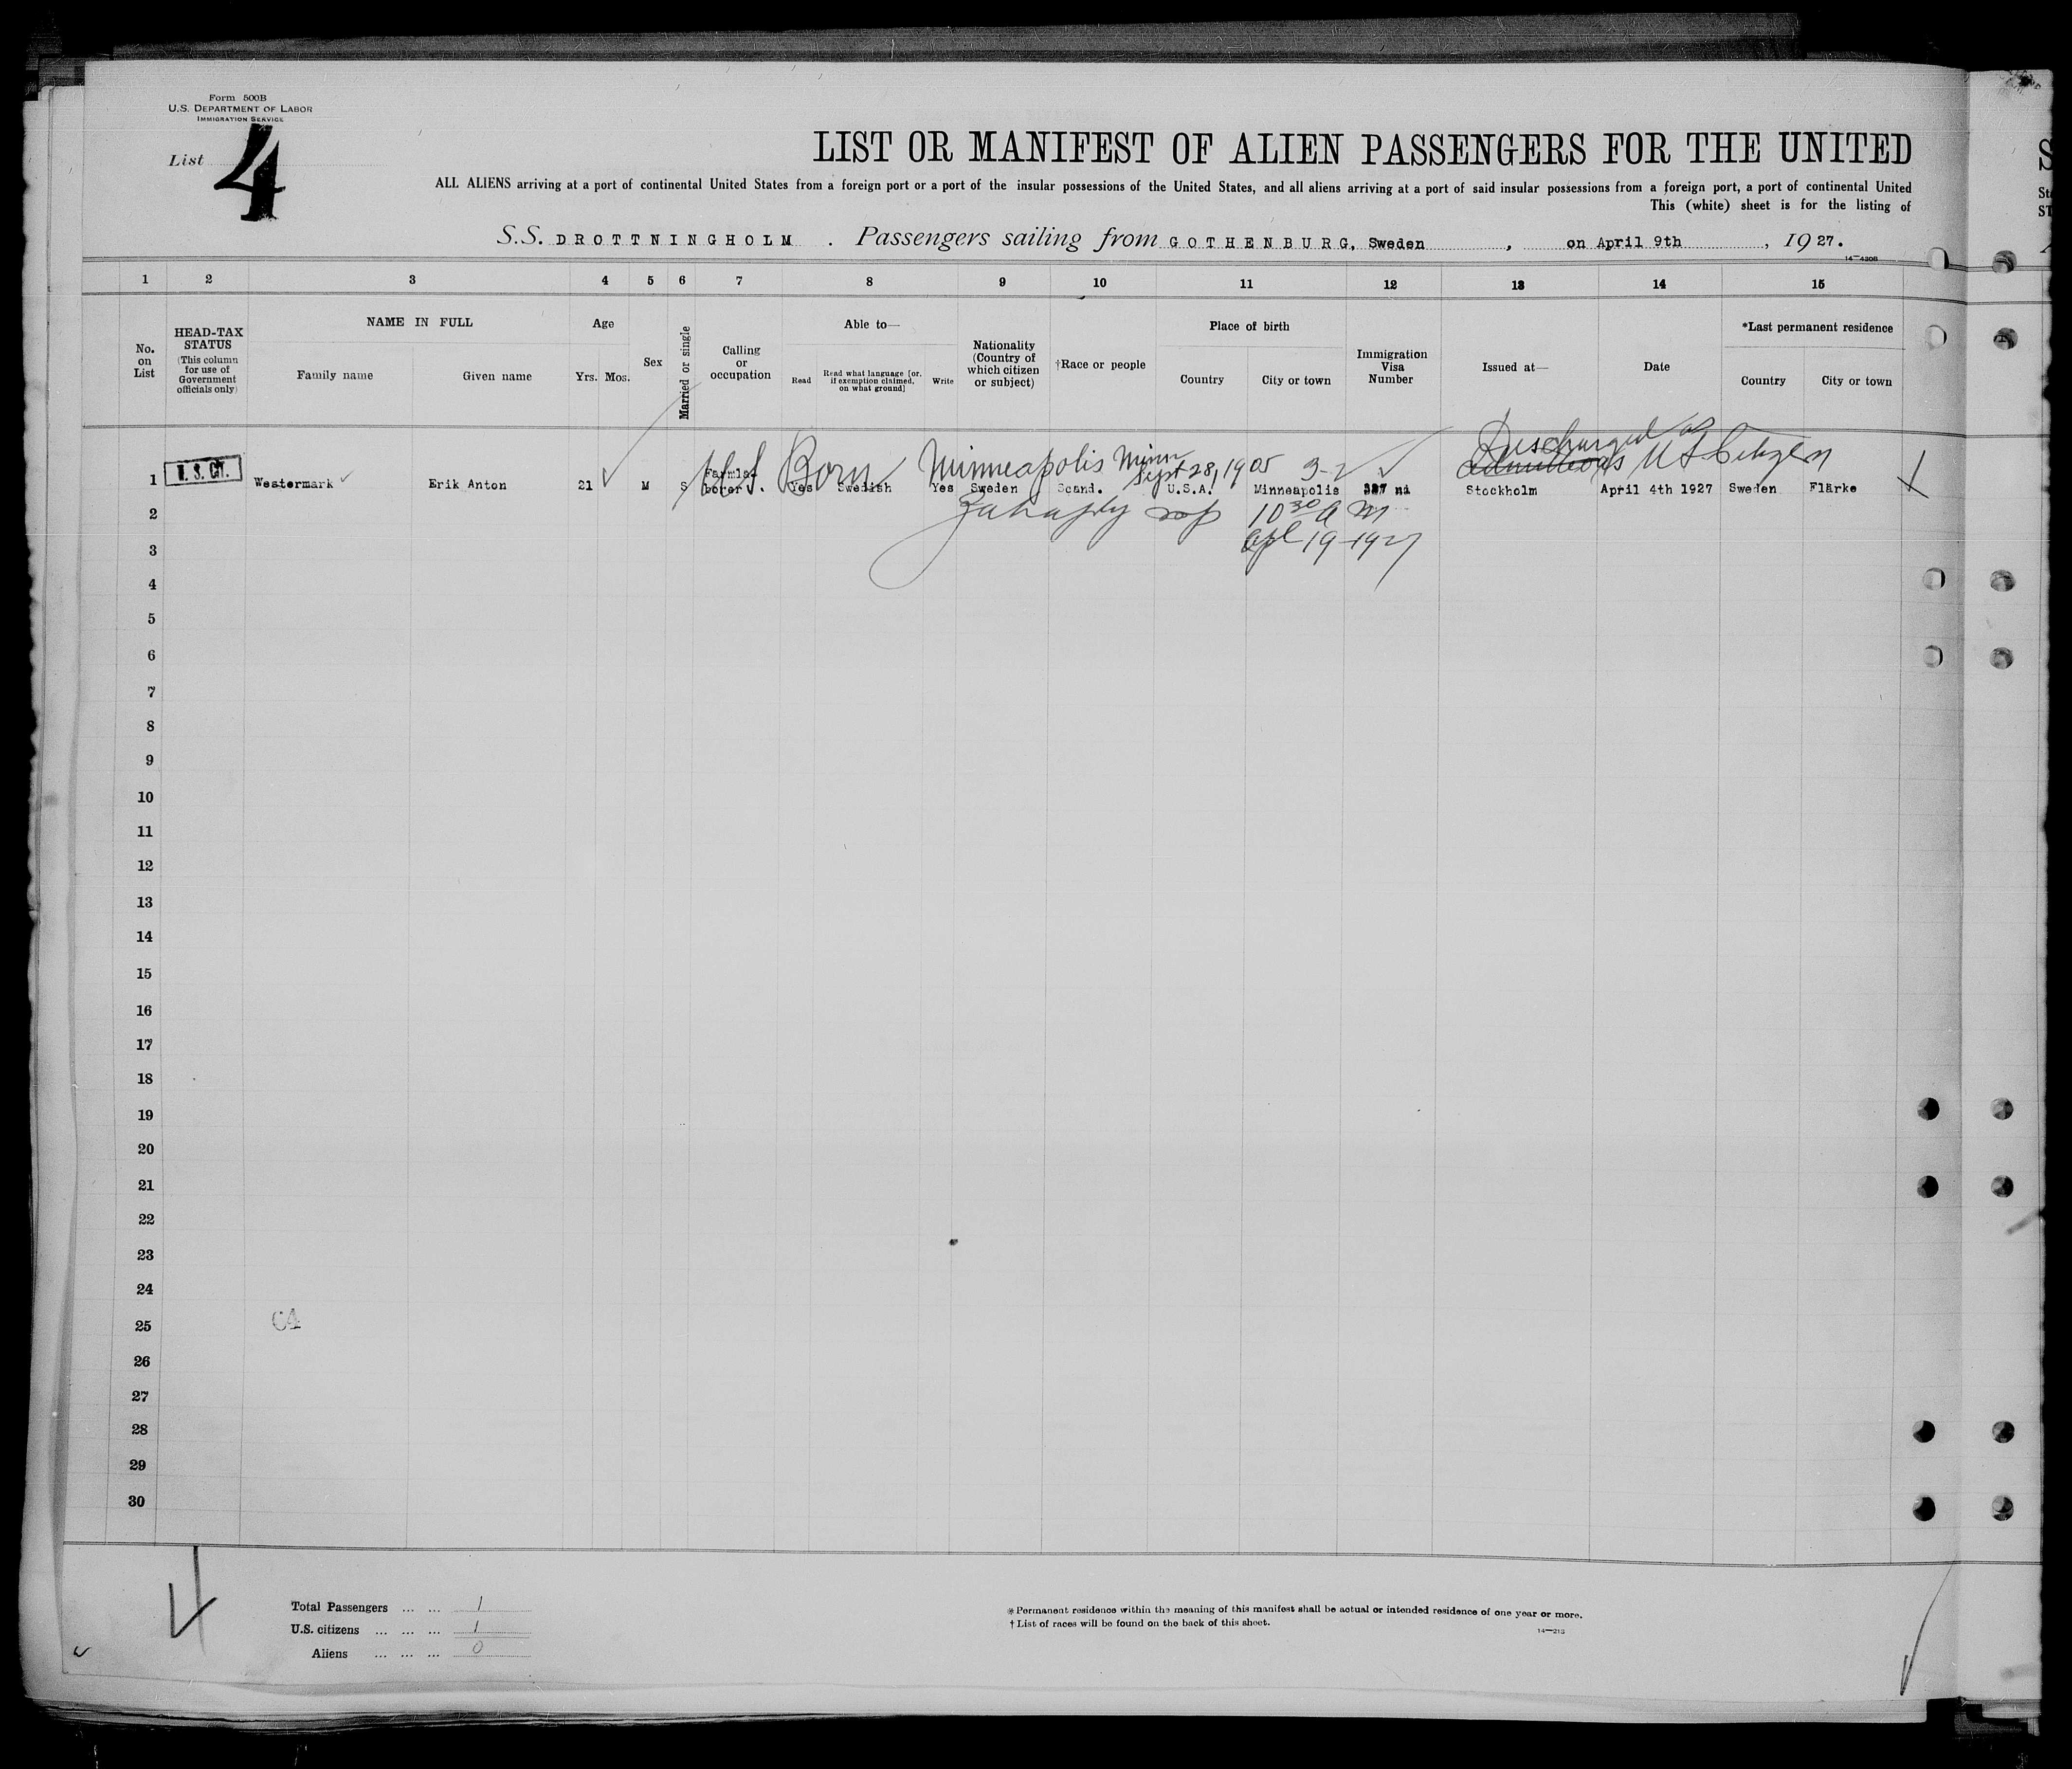 Form 500B
U.S. DEPARTMENT OF LABOR
IMMIGRATION SERVICE
List 4
LIST OR MANIFEST OF ALIEN PASSENGERS FOR THE UNITED
ALL ALIENS arriving at a port of continental United States from a foreign port or a port of the insular possessions of the United States, and all aliens arriving at a port of said insular possessions from a foreign port, a port of continental United
This (white) sheet is for the listing of
S.S. DROTTNINGHOLM . Passengers sailing from GOTHENBURG, Sweden , on April 9th , 1927.
14—4208
1 2 3 4 5 6 7 8 9 10 11 12 13 14 15
No. on List
HEAD-TAX STATUS
(This column for use of Government officials only)
NAME IN FULL
Family name
Given name
Age
Yrs. Mos.
Sex
Married or single
Calling or occupation
Able to—
Read
Read what language [or, if exemption claimed, on what ground]
Write
Nationality (Country of which citizen or subject)
†Race or people
Place of birth
Country
City or town
Immigration Visa Number
Issued at—
Date
*Last permanent residence
Country
City or town
Discharged as
U.S. Born Minneapolis Minn Sept 28, 1905 as U S Citizen
1 U.S. CIT. Westermark Erik Anton 21 M S Farmla-borer. Yes Swedish Yes Sweden Scand. U.S.A. Minneapolis Stockholm April 4th 1927 Sweden Flärke
2 10 30 A M
3 Apl 19 1927
4
5
6
7
8
9
10
11
12
13
14
15
16
17
18
19
20
21
22
23
24
25 C4
26
27
28
29
30
4
Total Passengers ... ... 1
U.S. citizens ... ... ... 1
Aliens ... ... ... 0
*Permanent residence within the meaning of this manifest shall be actual or intended residence of one year or more.
†List of races will be found on the back of this sheet.
14—213